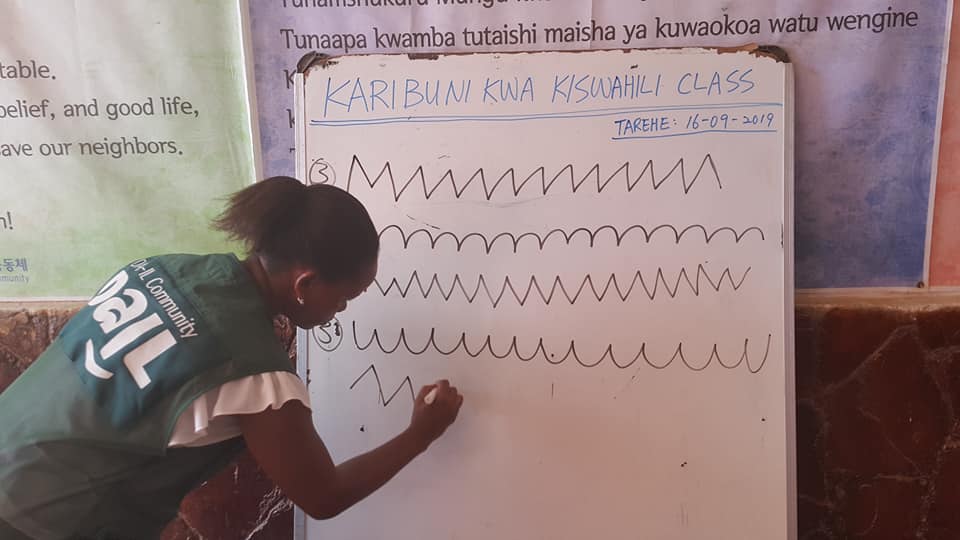 Tunaapa kwamba tutaishi maisha ya kuwaokoa watu wengine
table.
belief, and good life,
ave our neighbors.
KARIBUNI KWA KISWAHILI CLASS
TAREHE: 16-09-2019
3
5
동체
munity
IL Community
DAIL